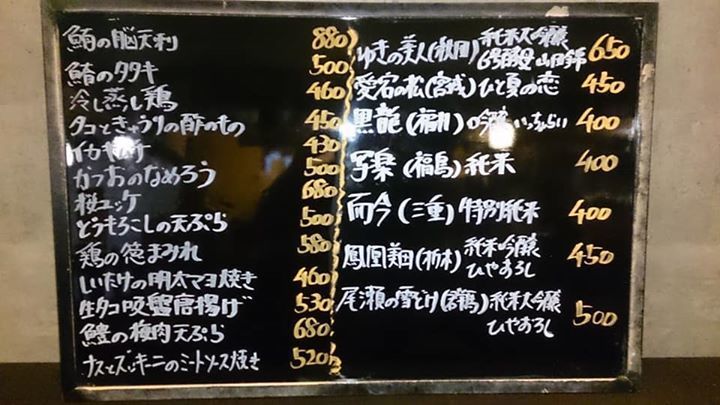 鮪の脳天刺 880
鯖のタタキ 500
冷し蒸し鶏 460
タコときゅうりの酢のもの 450
イカキムチ 430
かつおのなめろう 500
桜ユッケ 680
とうもろこしの天ぷら 500
鶏の葱まみれ 580
しいたけの明太マヨ焼き 460
生タコ吸盤唐揚げ 530
鱧の梅肉天ぷら 680
ナスとズッキーニのミートソース焼き 520
ゆきの美人(秋田)純米大吟醸
6号酵母 山田錦 650
愛宕の松(宮城)ひと夏の恋 450
黒龍(福井)吟醸いっちょらい 400
写楽(福島)純米 400
而今(三重)特別純米 400
鳳凰美田(栃木)純米吟醸
ひやおろし 450
尾瀬の雪どけ(群馬)純米大吟醸
ひやおろし 500